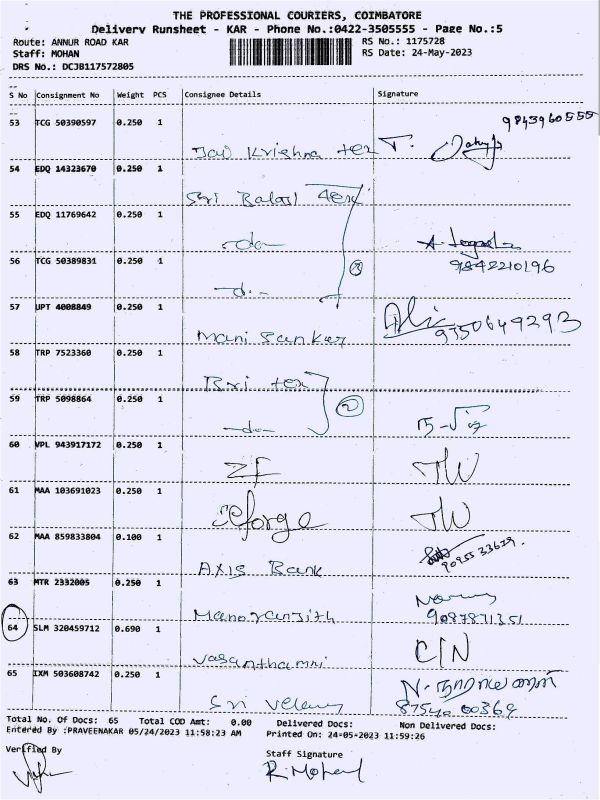 THE PROFESSIONAL COURIERS, COIMBATORE
Delivery Runsheet - KAR - Phone No.:0422-3505555 - Page No.:5
Route: ANNUR ROAD KAR RS No.: 1175728
Staff: MOHAN RS Date: 24-May-2023
DRS No.: DCJB117572805
S No Consignment No Weight PCS Consignee Details Signature
53 TCG 50390597 0.250 1 9843960555
Jai Krishna tex
54 EDQ 14323670 0.250 1
Sri Balaji tex
55 EDQ 11769642 0.250 1
-do-
56 TCG 50389831 0.250 1 9842210196
-do-
57 UPT 4008849 0.250 1
Mani Sankar 9750649293
58 TRP 7523360 0.250 1
Bri tex
59 TRP 5098864 0.250 1 2
-do-
60 VPL 943917172 0.250 1
ZF
61 MAA 103691023 0.250 1
62 MAA 859833804 0.100 1
Axis Bank
63 MTR 2332005 0.250 1
Manoranjith 9087871351
64 SLM 320459712 0.690 1
Vasanthamni
65 IXM 503608742 0.250 1 N. நாராயணன்
Sri
Total No. Of Docs: 65 Total COD Amt: 0.00 Delivered Docs: Non Delivered Docs:
Entered By :PRAVEENAKAR 05/24/2023 11:58:23 AM Printed On: 24-05-2023 11:59:26
Verified By Staff Signature
R. Mohan